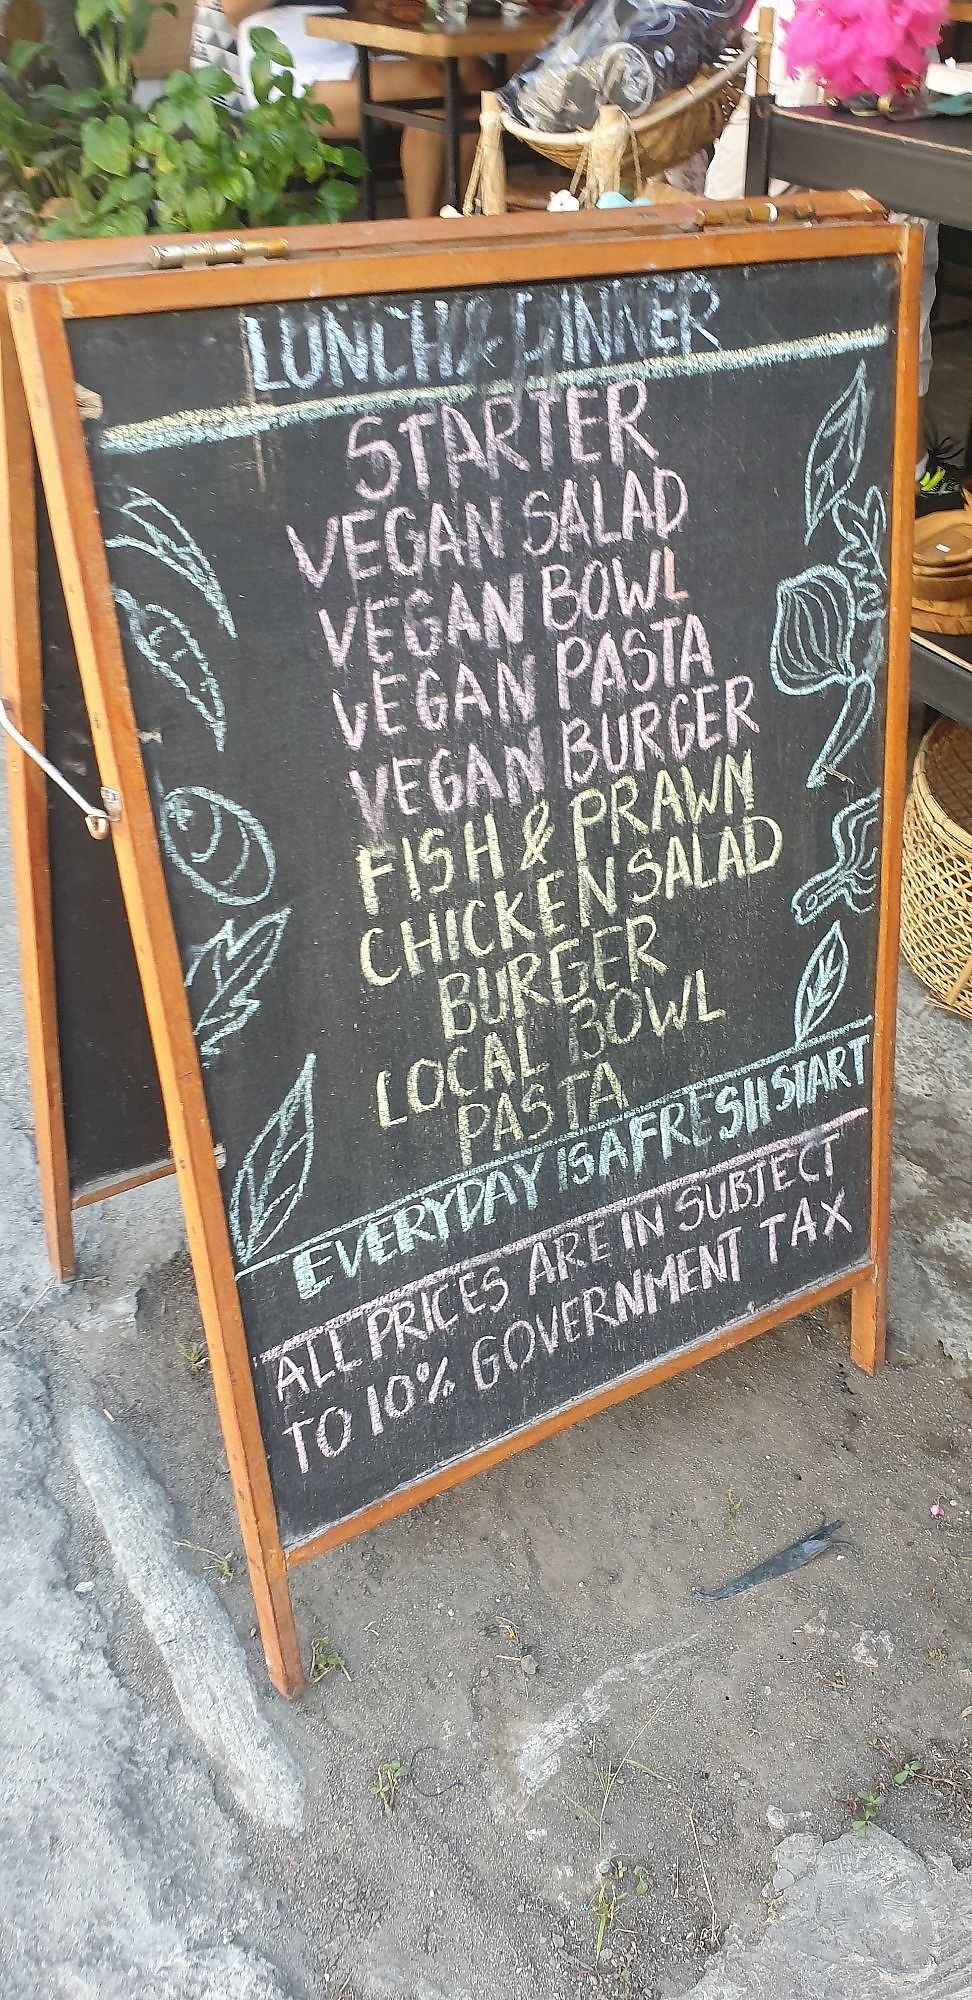 LUNCH & DINNER
STARTER
VEGAN SALAD
VEGAN BOWL
VEGAN PASTA
VEGAN BURGER
FISH & PRAWN
CHICKEN SALAD
BURGER
LOCAL BOWL
PASTA
EVERYDAY IS A FRESH START
ALL PRICES ARE IN SUBJECT
TO 10% GOVERNMENT TAX